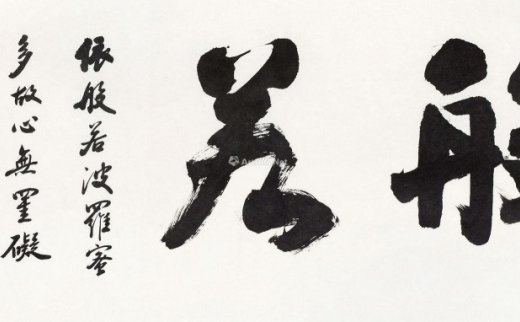 般若
依般若波羅蜜
多故心無罣礙